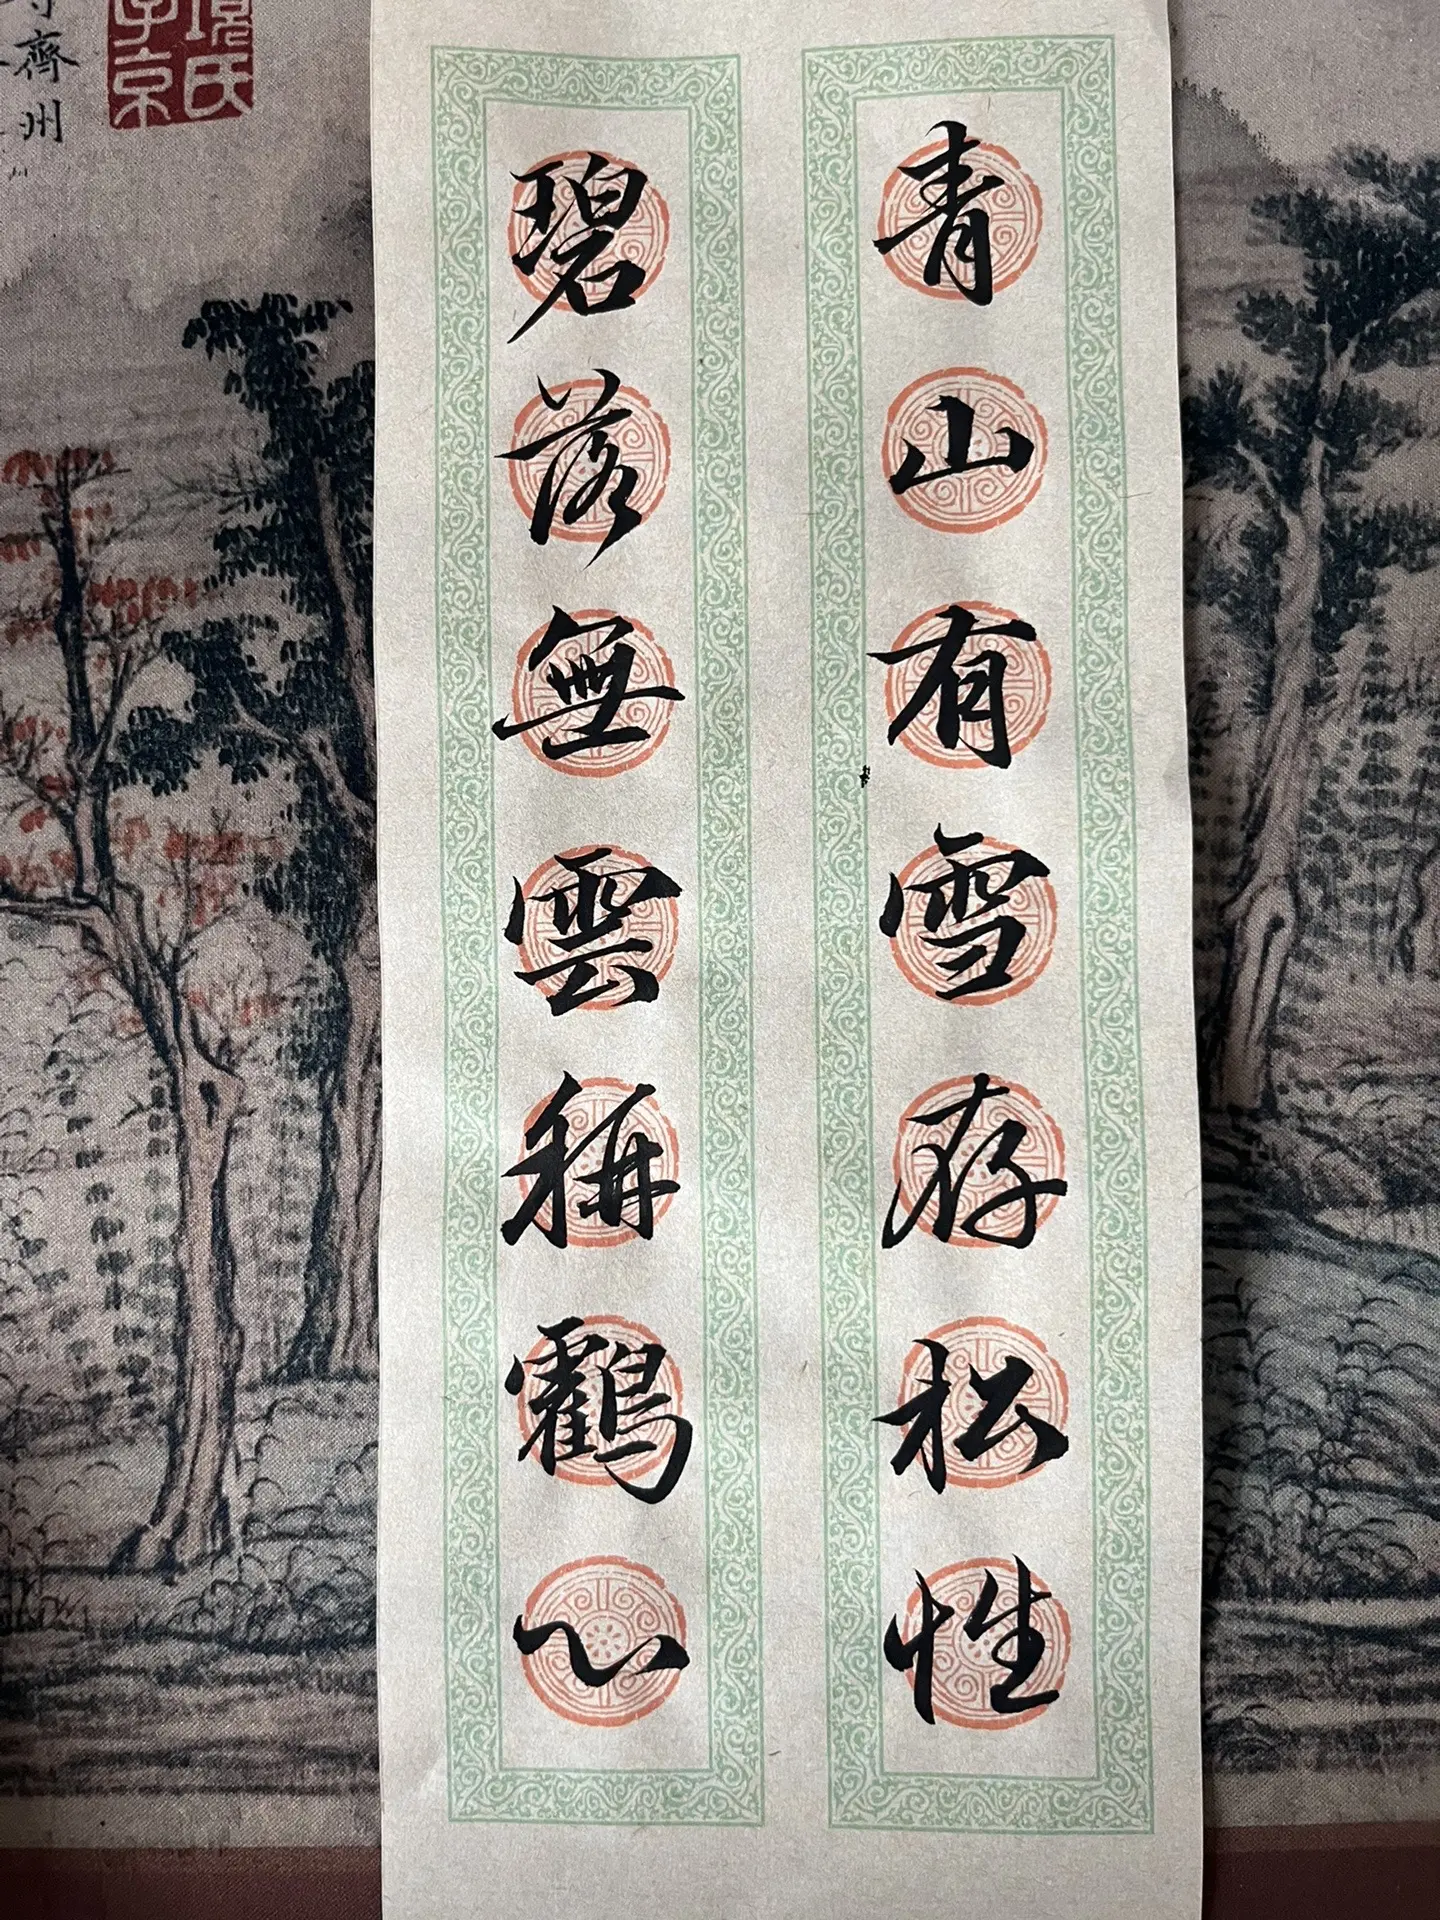 青山有雪存松性
碧落無雲稱鶴心
齊州
項氏
子京